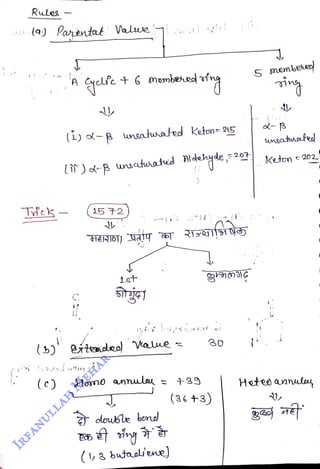 Rules -
(a) Parental Value
A Cyclic + 6 membered ring
5 membered ring
(i) α-β unsaturated Keton = 215
(ii) α-β unsaturated Aldehyde = 207
α-β unsaturated Keton = 202
Trick - 1572
महाराणा प्रताप का राज्याभिषेक
1st
गोगुंदा
कुम्भलगढ़
(b) Extended Value = 30
(c) Homo annular = +39
(36+3)
दो double bond
एक ही ring में हो
(1,3 butadiene)
Heteo annular
कुछ नहीं
IRFANULLAH MEHAR